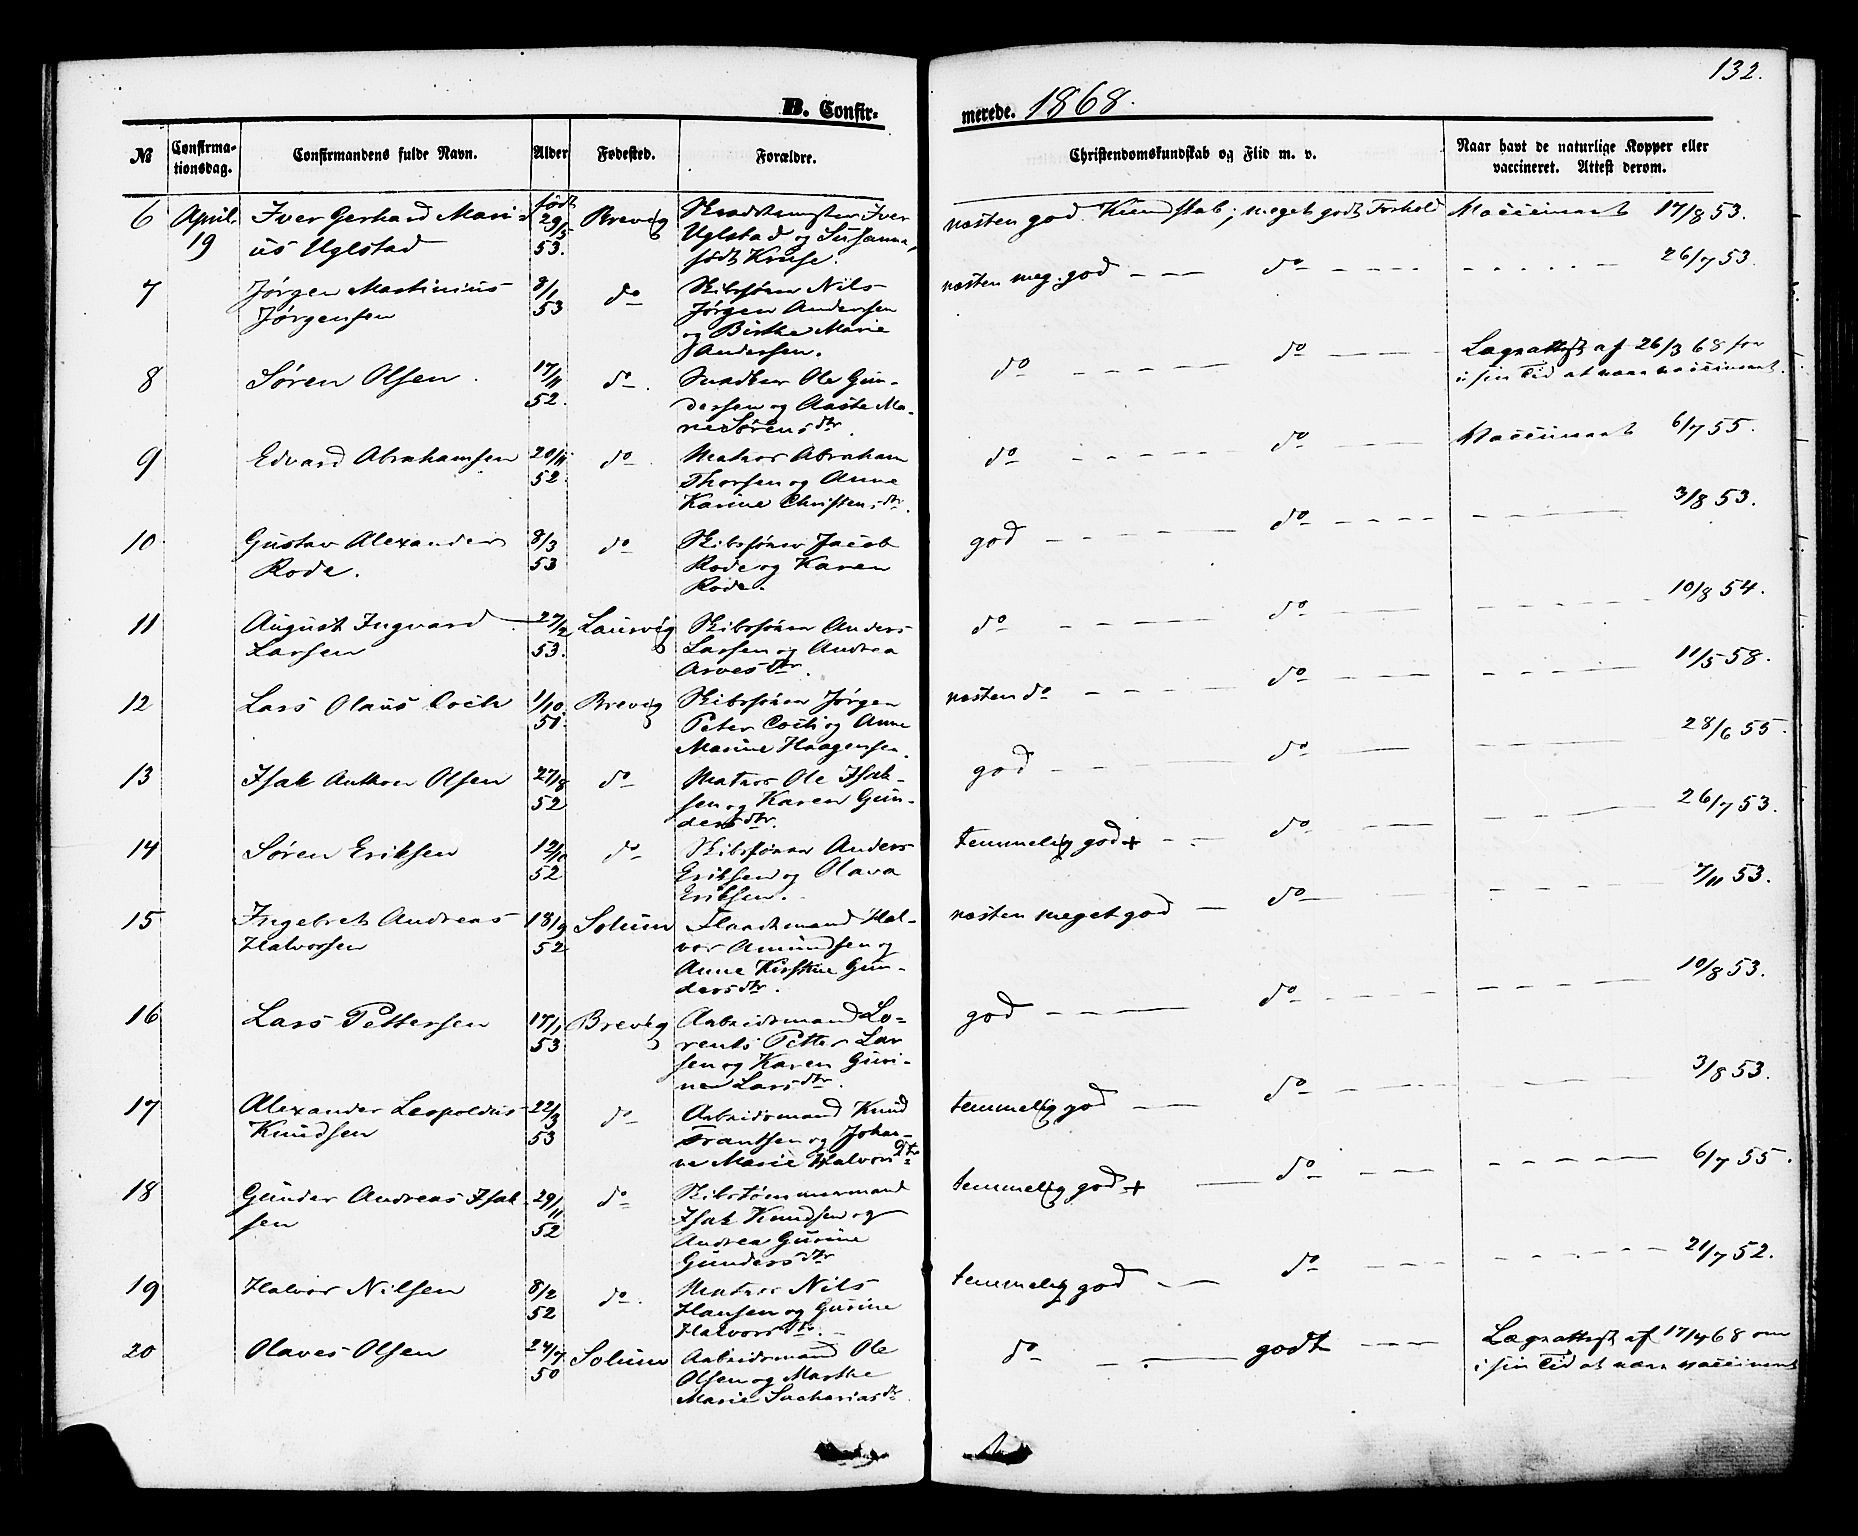 132.
B. Confir-
merede. 1868.
№
Confirma-
tionsdag.
Confirmandens fulde Navn.
Alder
Fødested.
Forældre.
Christendomskundskab og Flid m. v.
Naar havt de naturlige Kopper eller
vaccineret. Attest derom.
6
April
19
Iver Gerhard Mari-
us Uglstad
født
29/5
53.
Brevig
Iver
Uglstad og Susanna,
født Kruse.
næsten god Kundskab; meget godt Forhold
Vaccineret 17/8 53.
7
Jørgen Martinius
Jørgensen
8/1
53
do
Skibsfører Nils
Jørgen Andersen
og Birthe Marie
Andersen.
næsten meg. god — — do — — — 26/7 53.
8
Søren Olsen.
17/11
52.
do.
Snedker Ole Gun-
dersen og Aaste Ma-
rie Sørensdtr.
do — — — do — — —
Lægeattest af 26/3 68 for
i sin Tid at være vaccineret.
9
Edvard Abrahamsen
20/11
52.
do.
Matros Abraham
Thorsen og Anne
Karine Christensdtr.
do — — — do — — —
Vaccineret 6/7 55.
10
Gustav Alexander
Rode.
8/3
53
do
Skibsfører Jacob
Rode og Karen
Rode.
god — — — do — — — 3/8 53.
11
August Ingvard
Larsen
27/2
53.
Laurvig
Skibsfører Anders
Larsen og Andrea
Arvesdtr.
do — — — do — — — 10/8 54.
12
Lars Olaus Coch
1/10
51.
Brevig
Skibsfører Jørgen
Peter Coch og Anne
Marine Haagensen.
næsten do — — — do — — — 11/5 58.
13
Isak Anthon Olsen
27/8
52
do
Matros Ole Isak-
sen og Karen Gun-
dersdtr.
god — — — do — — — 28/6 55.
14
Søren Eriksen
12/10
52
do
Skibsfører Anders
Eriksen og Olava
Eriksen.
temmelig god + — — do — — — 26/7 53.
15
Ingebret Andreas
Halvorsen
18/9
52
Solum
Flaademand Hal-
vor Amundsen og
Anne Kirstine Gun-
dersdtr.
næsten meget god — do — — — 7/11 53.
16
Lars Pettersen
17/1
53
Brevig
Arbeidsmand Lo-
rents Petter Lar
sen og Karen Guri-
ne Larsdtr.
god — — — do — — — 10/8 53.
17
Alexander Leopoldus
Knudsen
22/3
53
do
Arbeidsmand Knud
Frantsen og Johan-
ne Marie Halvorsdtr
temmelig god — — do — — — 3/8 53.
18
Gunder Andreas Isak-
sen
29/11
52
do
Skibstømmermand
Isak Knudsen og
Andrea Gurine
Gundersdtr
temmelig god + — — do — — — 6/7 55.
19
Halvor Nilsen
8/2
52
do.
Matros Nils
Hansen og Gurine
Halvorsdtr.
temmelig god — — do — — — 21/7 52.
20
Olaves Olsen
24/7
50
Solum
Arbeidsmand Ole
Olsen og Marthe
Marie Sachariasdtr.
do — — — godt — —
Lægeattest af 17/4 68 om
i sin Tid at være vaccineret